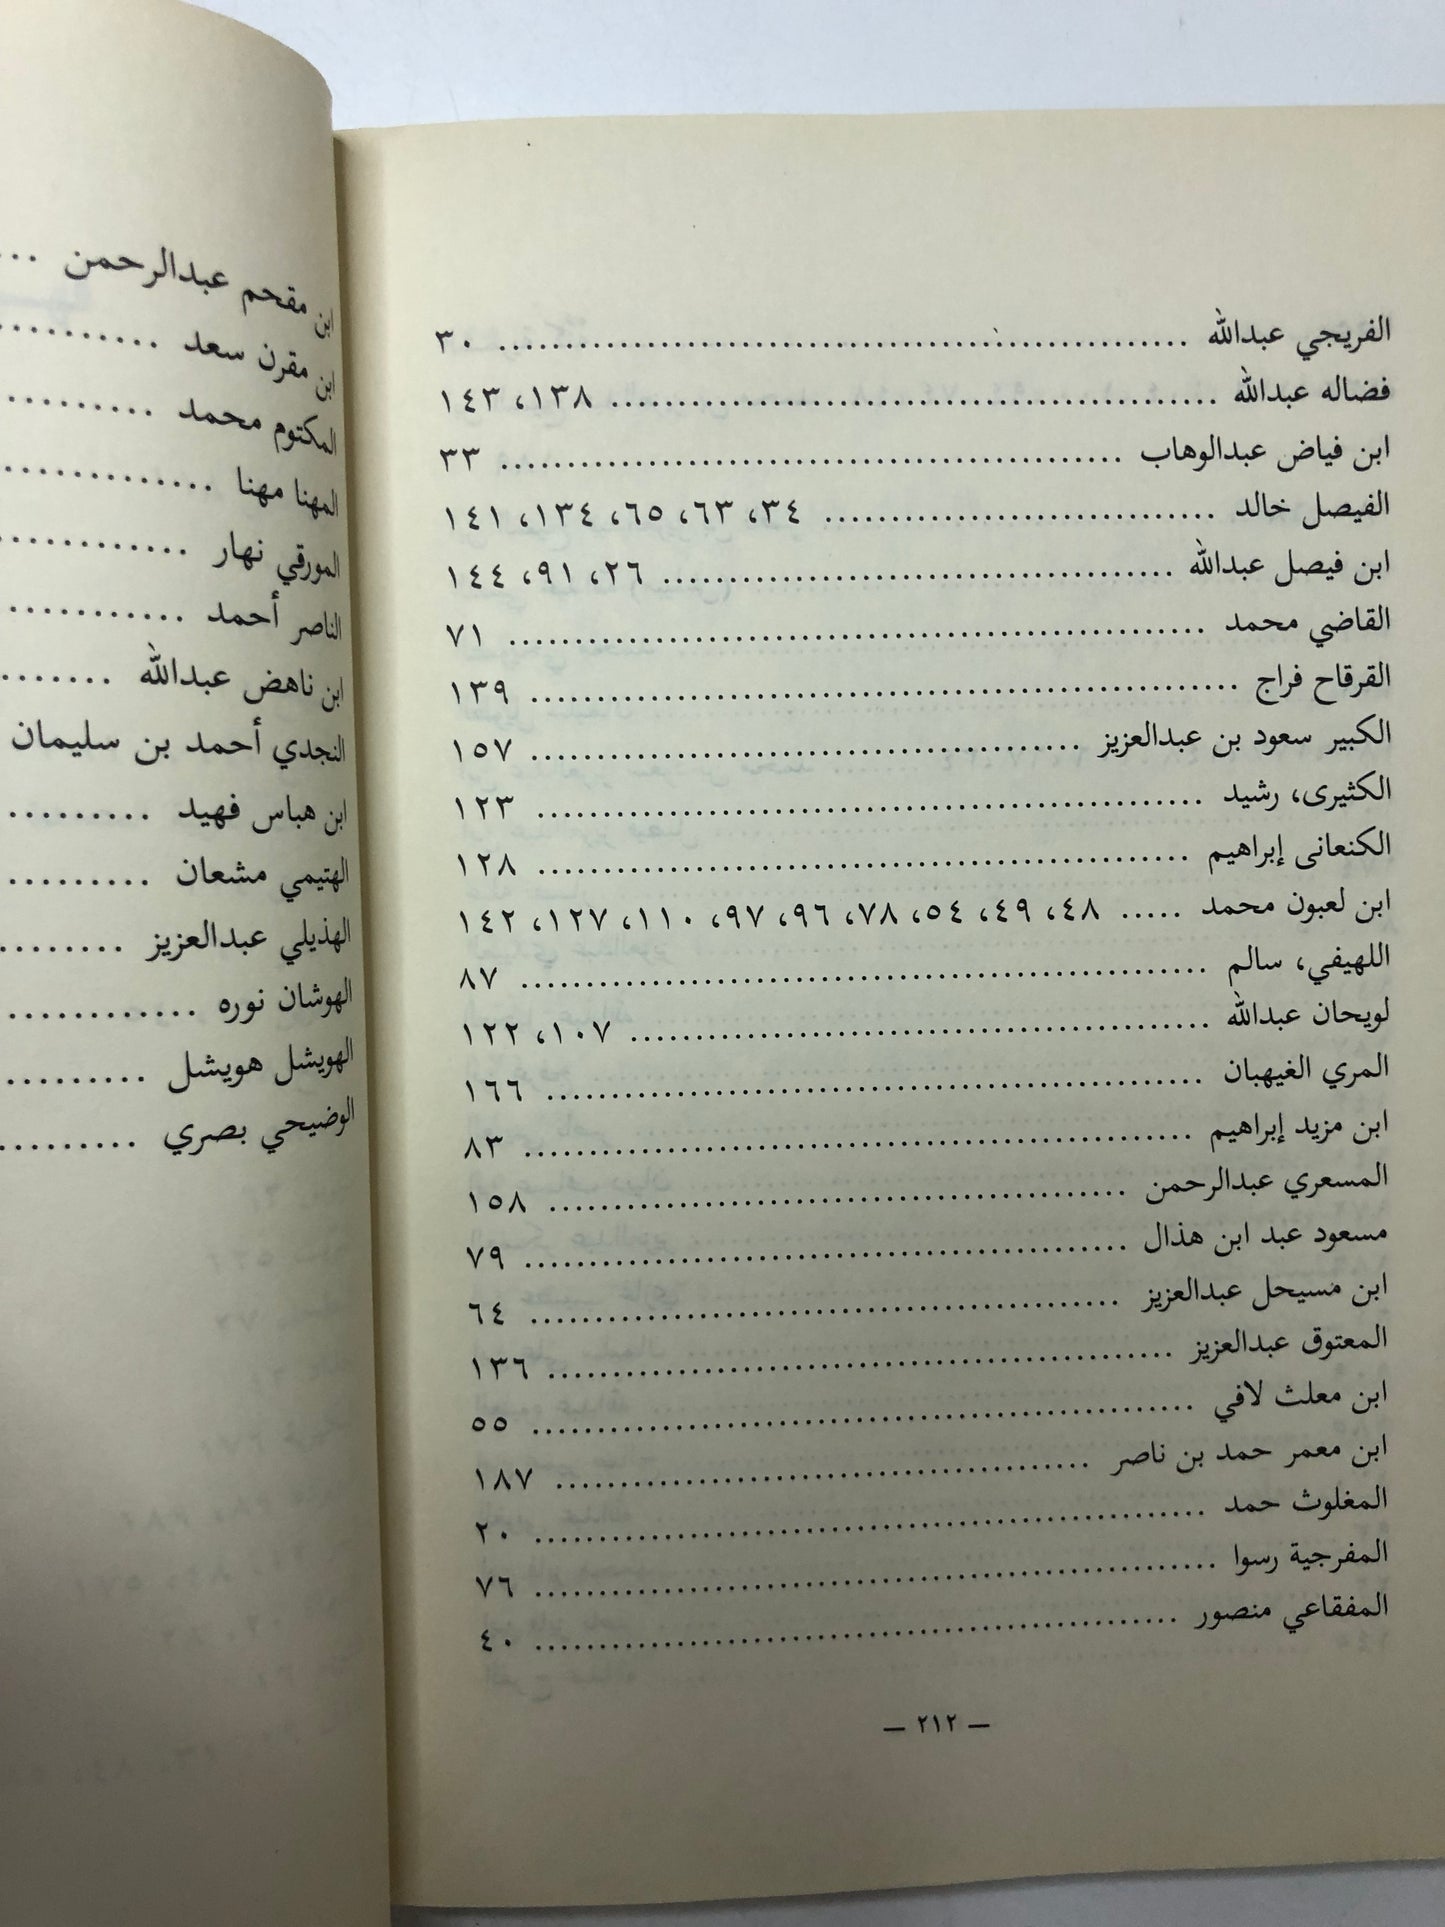 الفريجي عبدالله ........ ٣٠
فضاله عبدالله ........ ١٣٨، ١٤٣
ابن فياض عبدالوهاب ........ ٣٣
الفيصل خالد ........ ٣٤، ٦٣، ٦٥، ١٣٤، ١٤١
ابن فيصل عبدالله ........ ٢٦، ٩١، ١٤٤
القاضي محمد ........ ٧١
القرقاح فراج ........ ١٣٩
الكبير سعود بن عبدالعزيز ........ ١٥٧
الكثيرى، رشيد ........ ١٢٣
الكنعانى إبراهيم ........ ١٢٨
ابن لعبون محمد ..... ٤٨، ٤٩، ٥٤، ٧٨، ٩٦، ٩٧، ١١٠، ١٢٧، ١٤٢
اللهيفي، سالم ........ ٨٧
لويحان عبدالله ........ ١٠٧، ١٢٢
المري الغيهبان ........ ١٦٦
ابن مزيد إبراهيم ........ ٨٣
المسعري عبدالرحمن ........ ١٥٨
مسعود عبد ابن هذال ........ ٧٩
ابن مسيحل عبدالعزيز ........ ٦٤
المعتوق عبدالعزيز ........ ١٣٦
ابن معلث لافي ........ ٥٥
ابن معمر حمد بن ناصر ........ ١٨٧
المغلوث حمد ........ ٢٠
المفرجية رسوا ........ ٧٦
المفقاعي منصور ........ ٤٠
— ٢١٢ —
ابن مقحم عبدالرحمن ...
ابن مقرن سعد ........
المكتوم محمد ........
المهنا مهنا ........
المورقي نهار ........
الناصر أحمد ........
ابن ناهض عبدالله ........
النجدي أحمد بن سليمان
ابن هباس فهيد ........
الهتيمي مشعان ........
الهذيلي عبدالعزيز ........
الهوشان نوره ........
الهويشل هويشل ........
الوضيحي بصري ........